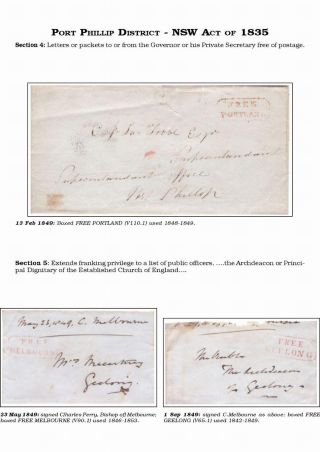 PORT PHILLIP DISTRICT - NSW ACT OF 1835
Section 4: Letters or packets to or from the Governor or his Private Secretary free of postage.
FREE
PORTLAND
Superintendant
Superintendants Office
Pt Phillip
13 Feb 1849: Boxed FREE PORTLAND (V110.1) used 1848-1849.
Section 5: Extends franking privilege to a list of public officers. ....the Archdeacon or Princi-
pal Dignitary of the Established Church of England....
May 23, 1849, C. Melbourne
FREE
MELBOURNE
Mrs Macartney
Geelong
FREE
GEELONG
The Archdeacon
Geelong
23 May 1849: signed Charles Perry, Bishop off Melbourne;
boxed FREE MELBOURNE (V90.1) used 1846-1853.
1 Sep 1849: signed C-Melbourne as above: boxed FREE
GEELONG (V65.1) used 1842-1849.